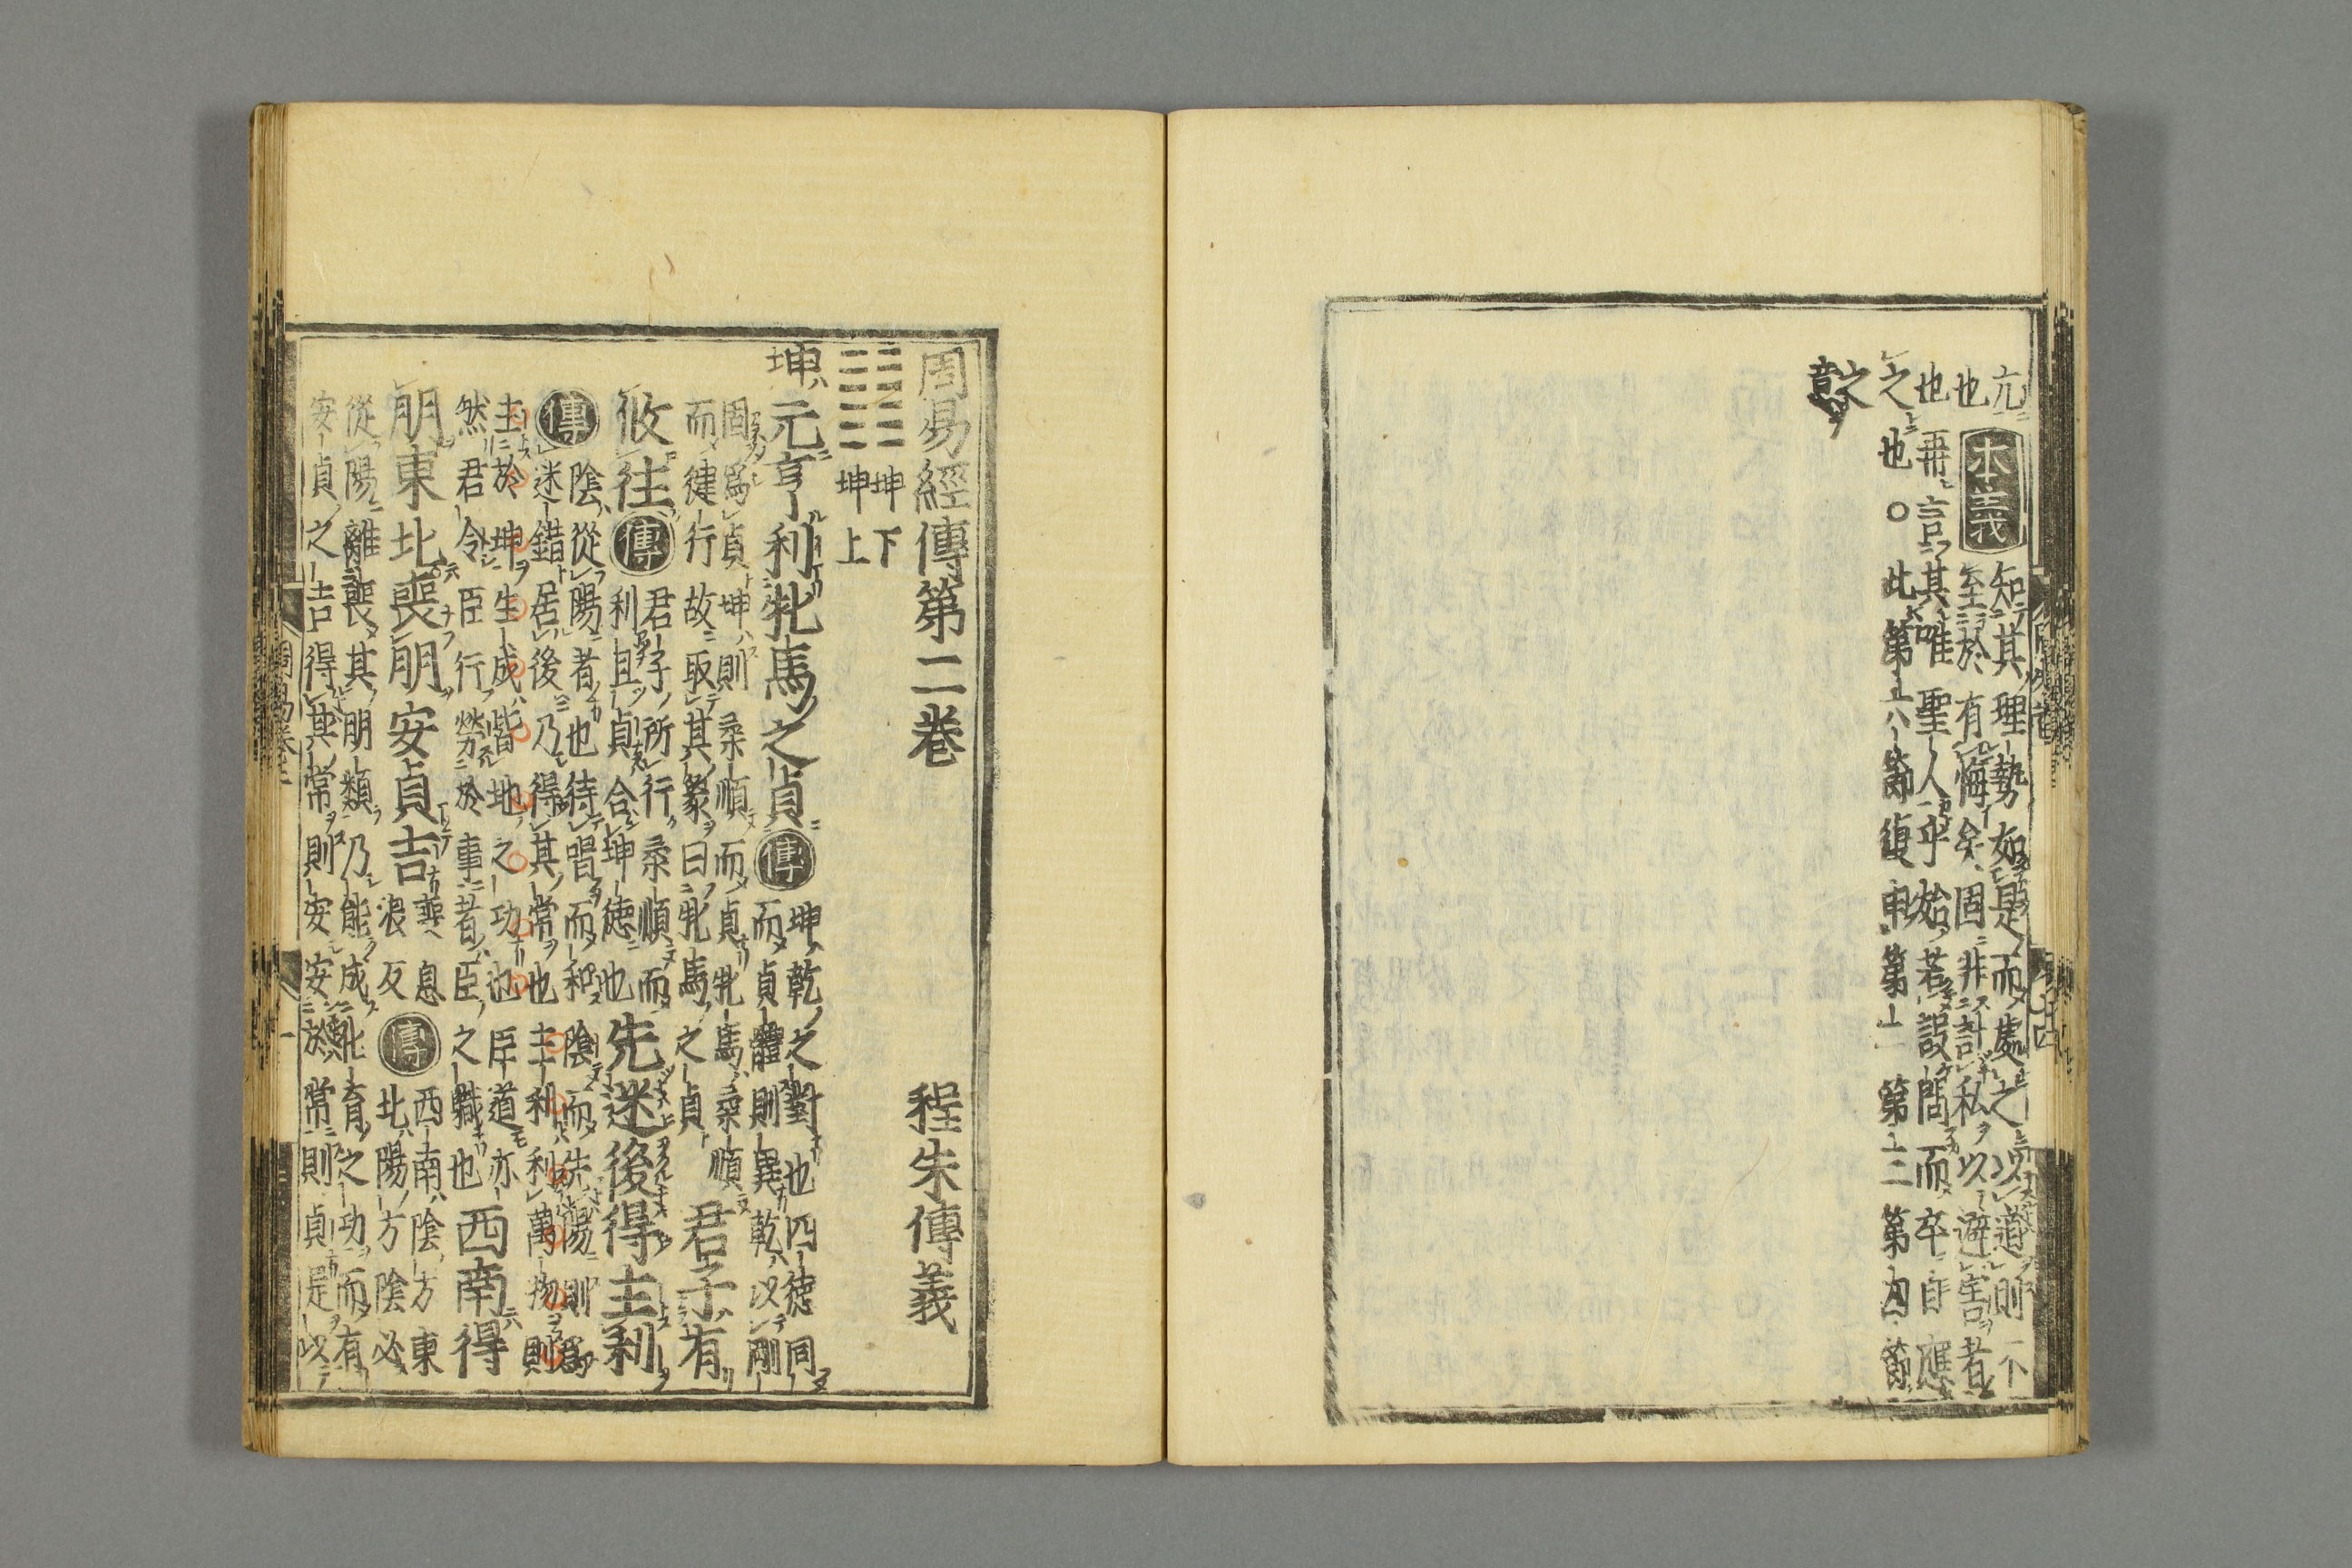 亢
也
本義
知其理勢如是而處之以道則不
至於有悔矣固非計私以避害者
也再言其唯聖人乎始若設問而卒自應
之也○此第六節復申第一第二第四節
之
意
周易經傳第二巻　程朱傳義
坤下
坤上
坤元亨利牝馬之貞傳
坤乾之對也四徳同
而貞體則異乾以剛
固爲貞坤則柔順而貞牝馬柔順
而健行故取其象曰牝馬之貞
君子有
攸往傳
君子所行柔順而
利且貞合坤徳也
先迷後得主利
傳
陰從陽者也待唱而和陰而先陽則爲
迷錯居後乃得其常也主利利萬物則
主於坤生成皆地之功也臣道亦
然君令臣行勞於事者臣之職也
西南得
朋東北喪朋安貞吉
喪息
浪反
傳
西南陰方東
北陽方陰必
從陽離喪其朋類乃能成化育之功而有
安貞之吉得其常則安安於常則貞是以